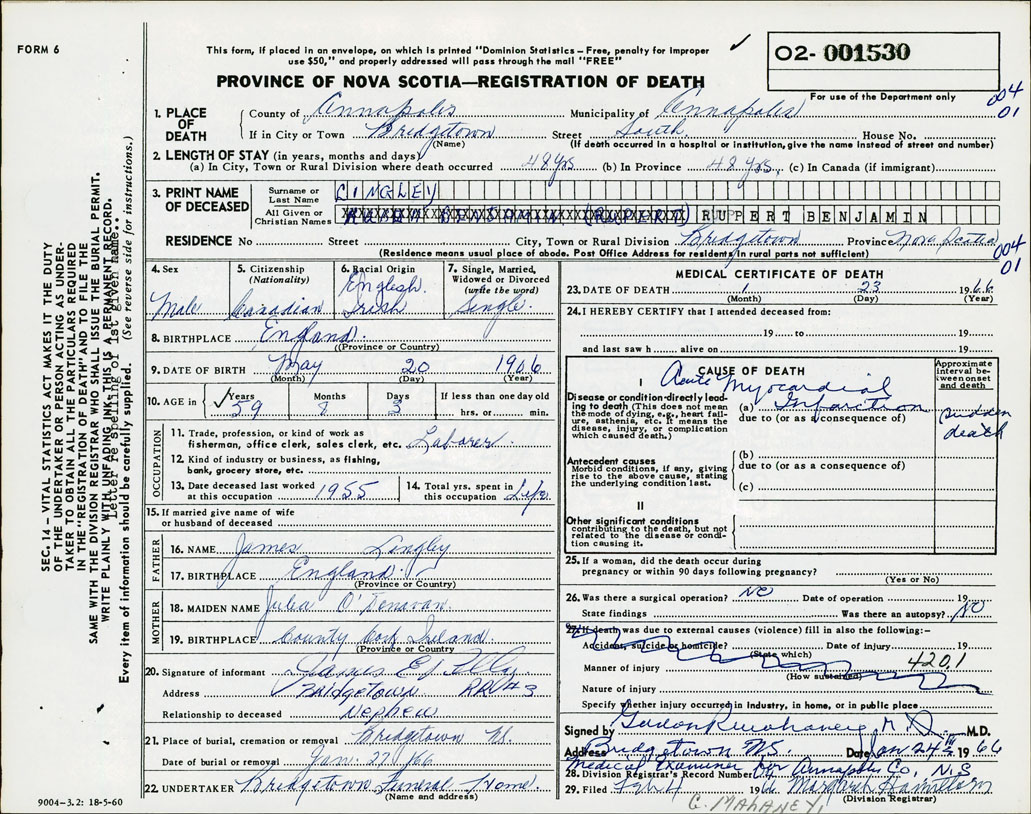 FORM 6
This form, if placed in an envelope, on which is printed "Dominion Statistics – Free, penalty for improper
use $50," and properly addressed will pass through the mail "FREE"
PROVINCE OF NOVA SCOTIA—REGISTRATION OF DEATH
✓
02- 001530
For use of the Department only
004
01
1. PLACE OF DEATH
County of Annapolis Municipality of Annapolis
If in City or Town Bridgetown Street South House No.
(Name) (If death occurred in a hospital or institution, give the name instead of street and number)
2. LENGTH OF STAY (in years, months and days)
(a) In City, Town or Rural Division where death occurred 48 yrs (b) In Province 48 yrs, (c) In Canada (if immigrant)
3. PRINT NAME OF DECEASED
Surname or Last Name LINGLEY
All Given or Christian Names RUPERT BENJAMIN
RESIDENCE No Street City, Town or Rural Division Bridgetown Province Nova Scotia
004
01
(Residence means usual place of abode. Post Office Address for residents in rural parts not sufficient)
4. Sex Male
5. Citizenship (Nationality) Canadian
6. Racial Origin English Irish
7. Single, Married, Widowed or Divorced (write the word) Single
8. BIRTHPLACE England
(Province or Country)
9. DATE OF BIRTH May 20 1906
(Month) (Day) (Year)
10. AGE in ✓ Years 59 Months 8 Days 3 If less than one day old hrs. or min.
OCCUPATION
11. Trade, profession, or kind of work as
fisherman, office clerk, sales clerk, etc. Laborer
12. Kind of industry or business, as fishing,
bank, grocery store, etc.
13. Date deceased last worked
at this occupation 1955
14. Total yrs. spent in
this occupation Life
15. If married give name of wife
or husband of deceased
FATHER
16. NAME James Lingley
17. BIRTHPLACE England
(Province or Country)
MOTHER
18. MAIDEN NAME Julia O'Donavan
19. BIRTHPLACE County Cork Ireland
(Province or Country)
20. Signature of informant James E.
Address Bridgetown RR #3
Relationship to deceased Nephew
21. Place of burial, cremation or removal Bridgetown NS.
Date of burial or removal Jan. 27/66
22. UNDERTAKER Bridgetown Funeral Home.
(Name and address)
9004-3.2: 18-5-60
MEDICAL CERTIFICATE OF DEATH
23. DATE OF DEATH 1 23 1966
(Month) (Day) (Year)
24. I HEREBY CERTIFY that I attended deceased from:
19 to 19
and last saw h alive on 19
CAUSE OF DEATH
Approximate interval between onset and death
I
Disease or condition directly leading to death (This does not mean the mode of dying, e.g., heart failure, asthenia, etc. It means the disease, injury, or complication which caused death.)
(a) Acute Myocardial Infarction
due to (or as a consequence of)
sudden death
Antecedent causes
Morbid conditions, if any, giving rise to the above cause, stating the underlying condition last.
(b)
due to (or as a consequence of)
(c)
II
Other significant conditions
contributing to the death, but not related to the disease or condition causing it.
25. If a woman, did the death occur during
pregnancy or within 90 days following pregnancy?
(Yes or No)
26. Was there a surgical operation? NO Date of operation 19
State findings Was there an autopsy? NO
27. If death was due to external causes (violence) fill in also the following:–
Accident, suicide or homicide? Date of injury 19
(State which)
Manner of injury 4201
(How sustained)
Nature of injury
Specify whether injury occurred in Industry, in home, or in public place
Signed by M.D. M.D.
Address Bridgetown NS. Date Jan 24th 1966
Medical Examiner for Annapolis Co, N.S
28. Division Registrar's Record Number
29. Filed Feb 4 1966 Margaret Hamilton
(Division Registrar)
G. MAHANEY
SEC. 14 – VITAL STATISTICS ACT MAKES IT THE DUTY
OF THE UNDERTAKER OR PERSON ACTING AS UNDER-
TAKER TO OBTAIN ALL THE PARTICULARS REQUIRED
IN THE "REGISTRATION OF DEATH" AND TO FILE THE
SAME WITH THE DIVISION REGISTRAR WHO SHALL ISSUE THE BURIAL PERMIT.
WRITE PLAINLY WITH UNFADING INK; THIS IS A PERMANENT RECORD.
Letter re spelling of 1st given name..
Every item of information should be carefully supplied. (See reverse side for instructions.)